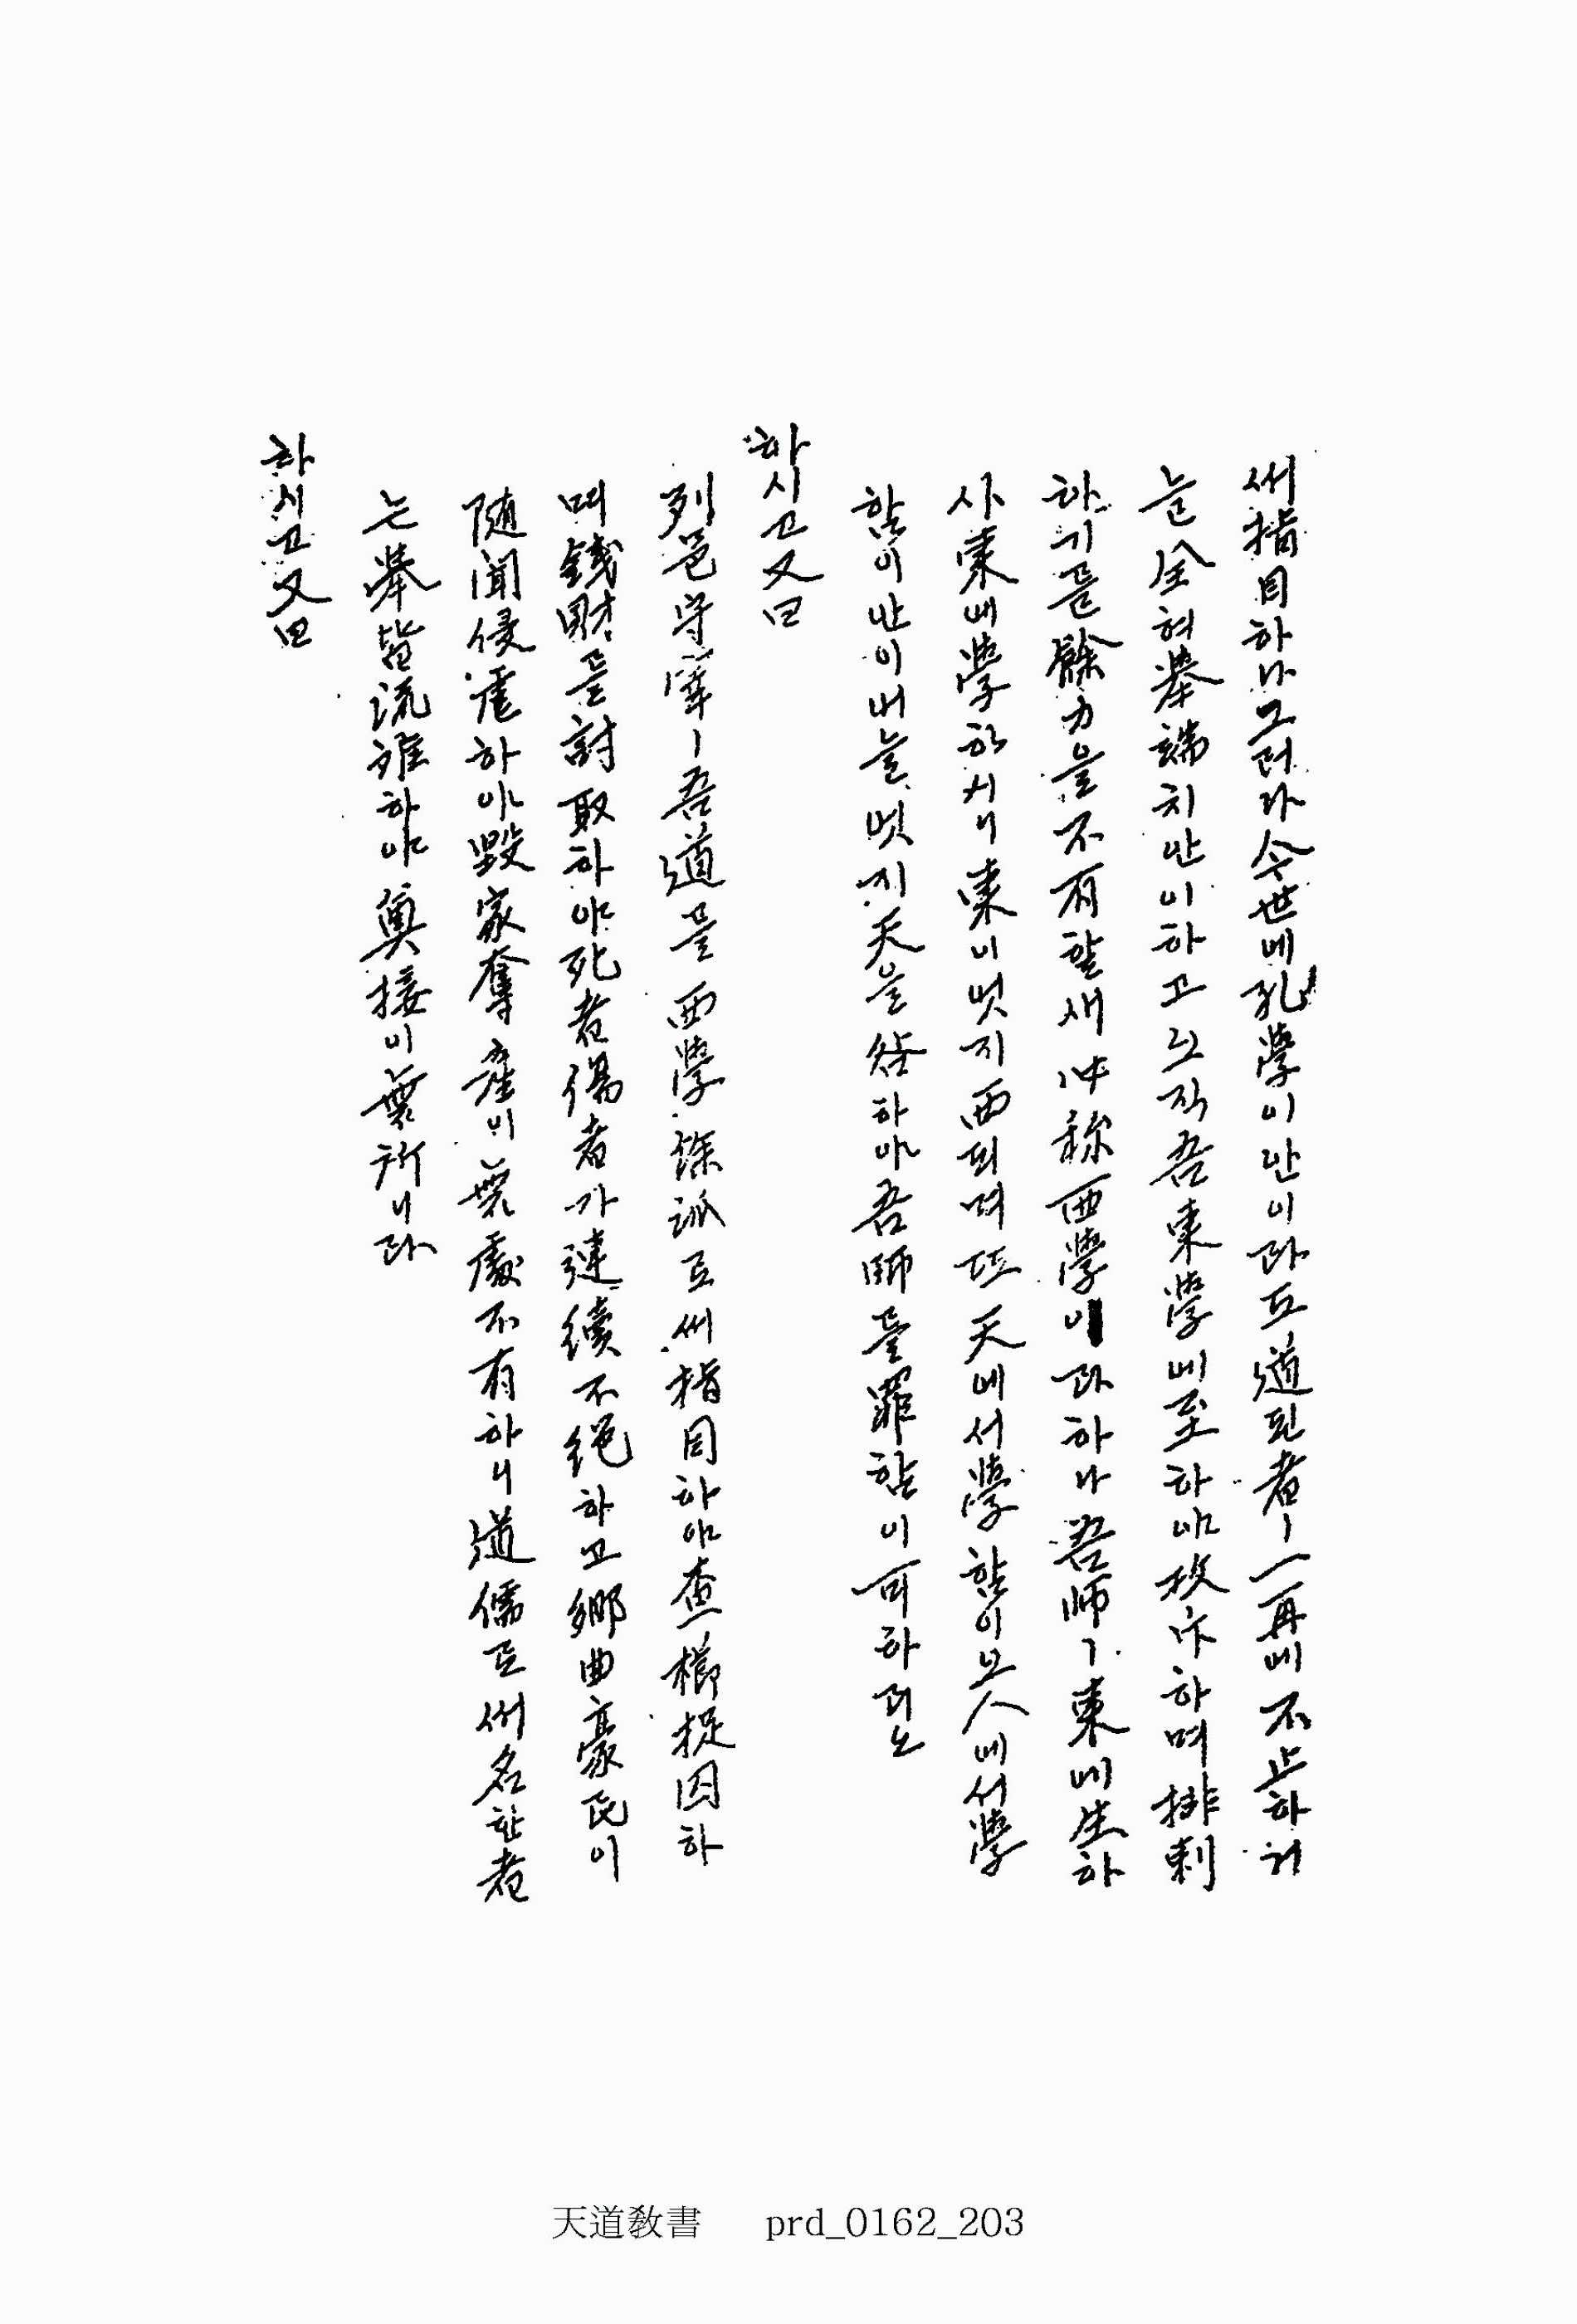 써指目하나그러나今世에孔學이안이라고道된者ㅣ一再에不止하거
늘全혀擧論치안이하고오즉吾東學에至하야攻斥하며排剌
하기를餘力을不有할새此를 称西學이라하나吾師ㅣ東에生하
사東에學하시니東이엇지西되며또天에서學함이오人에서學
함이안이어늘엇지天을咎하야吾師를罪함이可하리오
하시고又曰
列邑守宰ㅣ吾道를西學餘派로써指目하야査櫛捉囚하
며錢財를討取하야死者傷者가連續不絶하고鄕曲豪民이
随聞侵虐하야毁家奪産이無處不有하니道儒로써名한者
는擧皆流離하야奠接이無所니라
하시고又曰
天道敎書 prd_0162_203